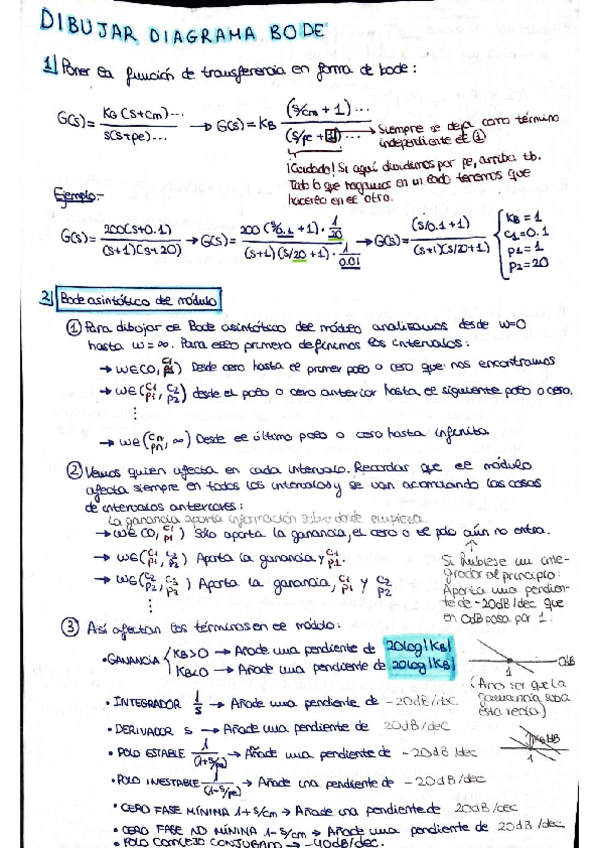 DIBUJAR DIAGRAMA BODE
1| Poner la función de transferencia en forma de bode:
G(s)= KG(s+cm)... / s(s+pe)... → G(s)= KB (s/cm + 1)... / (s/pe + 1)...
→ Siempre se deja como término
independiente el ①
¡Cuidado! Si aquí dividimos por pe, arriba tb.
Todo lo que hagamos en un lado tenemos que
hacerlo en el otro.
Ejemplo:-
G(s)= 200(s+0.1) / (s+1)(s+20) → G(s)= 200 (s/0.1 +1)· 1/20 / (s+1)(s/20 +1)· 1/0.01 → G(s)= (s/0.1 +1) / (s+1)(s/20+1) { KB = 1
C1=0.1
P1= 1
P2=20
2| Bode asintótico de módulo
① Para dibujar el Bode asintótico del módulo analizamos desde w=0
hasta w=∞. Para ello primero definimos los intervalos:
→ w∈(0, c1/p1) Desde cero hasta el primer polo o cero que nos encontramos
→ w∈(c1/p1, c2/p2) desde el polo o cero anterior hasta el siguiente polo o cero.
⋮
→ w∈(cn/pn, ∞) Desde el último polo o cero hasta infinito
② Vemos quien afecta en cada intervalo. Recordar que el módulo
afecta siempre en todos los intervalos y se van acumulando las cosas
de intervalos anteriores:
La ganancia aporta información sobre donde empieza.
→ w∈(0, c1/p1) Sólo aporta la ganancia, el cero o el polo aún no entra.
→ w∈(c1/p1, c2/p2) Aporta la ganancia y c1/p1.
→ w∈(c2/p2, c3/p3) Aporta la ganancia, c1/p1 y c2/p2
⋮
Si hubiese un inte-
grador al principio:
Aporta una pendien-
te de -20dB/dec que
en 0dB pasa por 1.
③ Así afectan los términos en el módulo:
• GANANCIA { KB>0 → Añade una pendiente de 20log|KB|
KB<0 → Añade una pendiente de 20log|KB|
0dB
1
(A no ser que la
ganancia suba
esta recta)
• INTEGRADOR 1/s → Añade una pendiente de -20dB/dec
• DERIVADOR s → Añade una pendiente de 20dB/dec
• POLO ESTABLE 1/(1+s/pe) → Añade una pendiente de -20dB/dec
1
• POLO INESTABLE 1/(1-s/pe) → Añade una pendiente de -20dB/dec
• CERO FASE MÍNIMA 1+s/cm → Añade una pendiente de 20dB/dec
• CERO FASE NO MÍNIMA 1-s/cm → Añade una pendiente de 20dB/dec
• POLO COMPLEJO CONJUGADO → -40dB/dec.